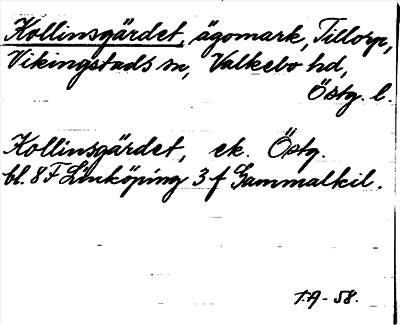 Kollinsgärdet, ägomark, Tillorp,
Vikingstads sn, Valkebo hd,
Östg. l.
Kollinsgärdet, ek. Östg.
bl. 8 F Linköping 3 f Gammalkil.
T.A-58.